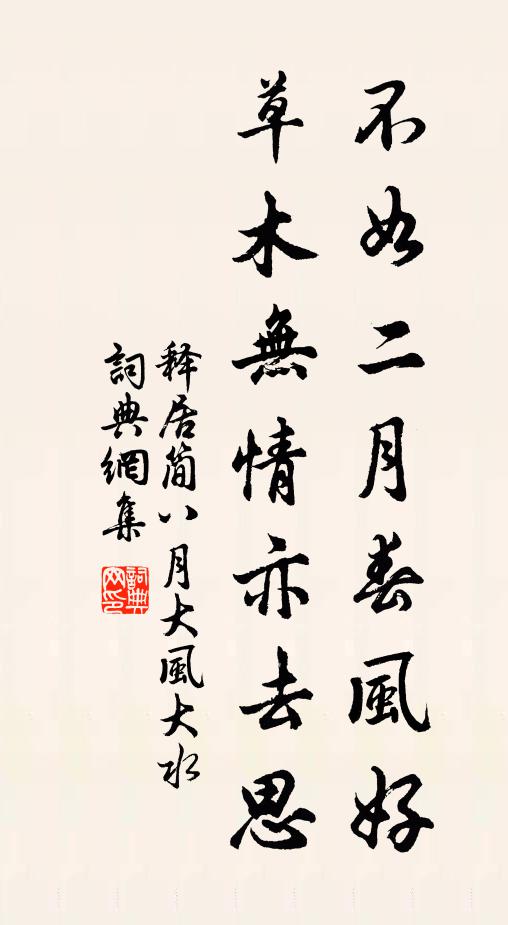 不如二月春風好
草木無情亦去思
释居简八月大風大水
詞典網集
詞典网印